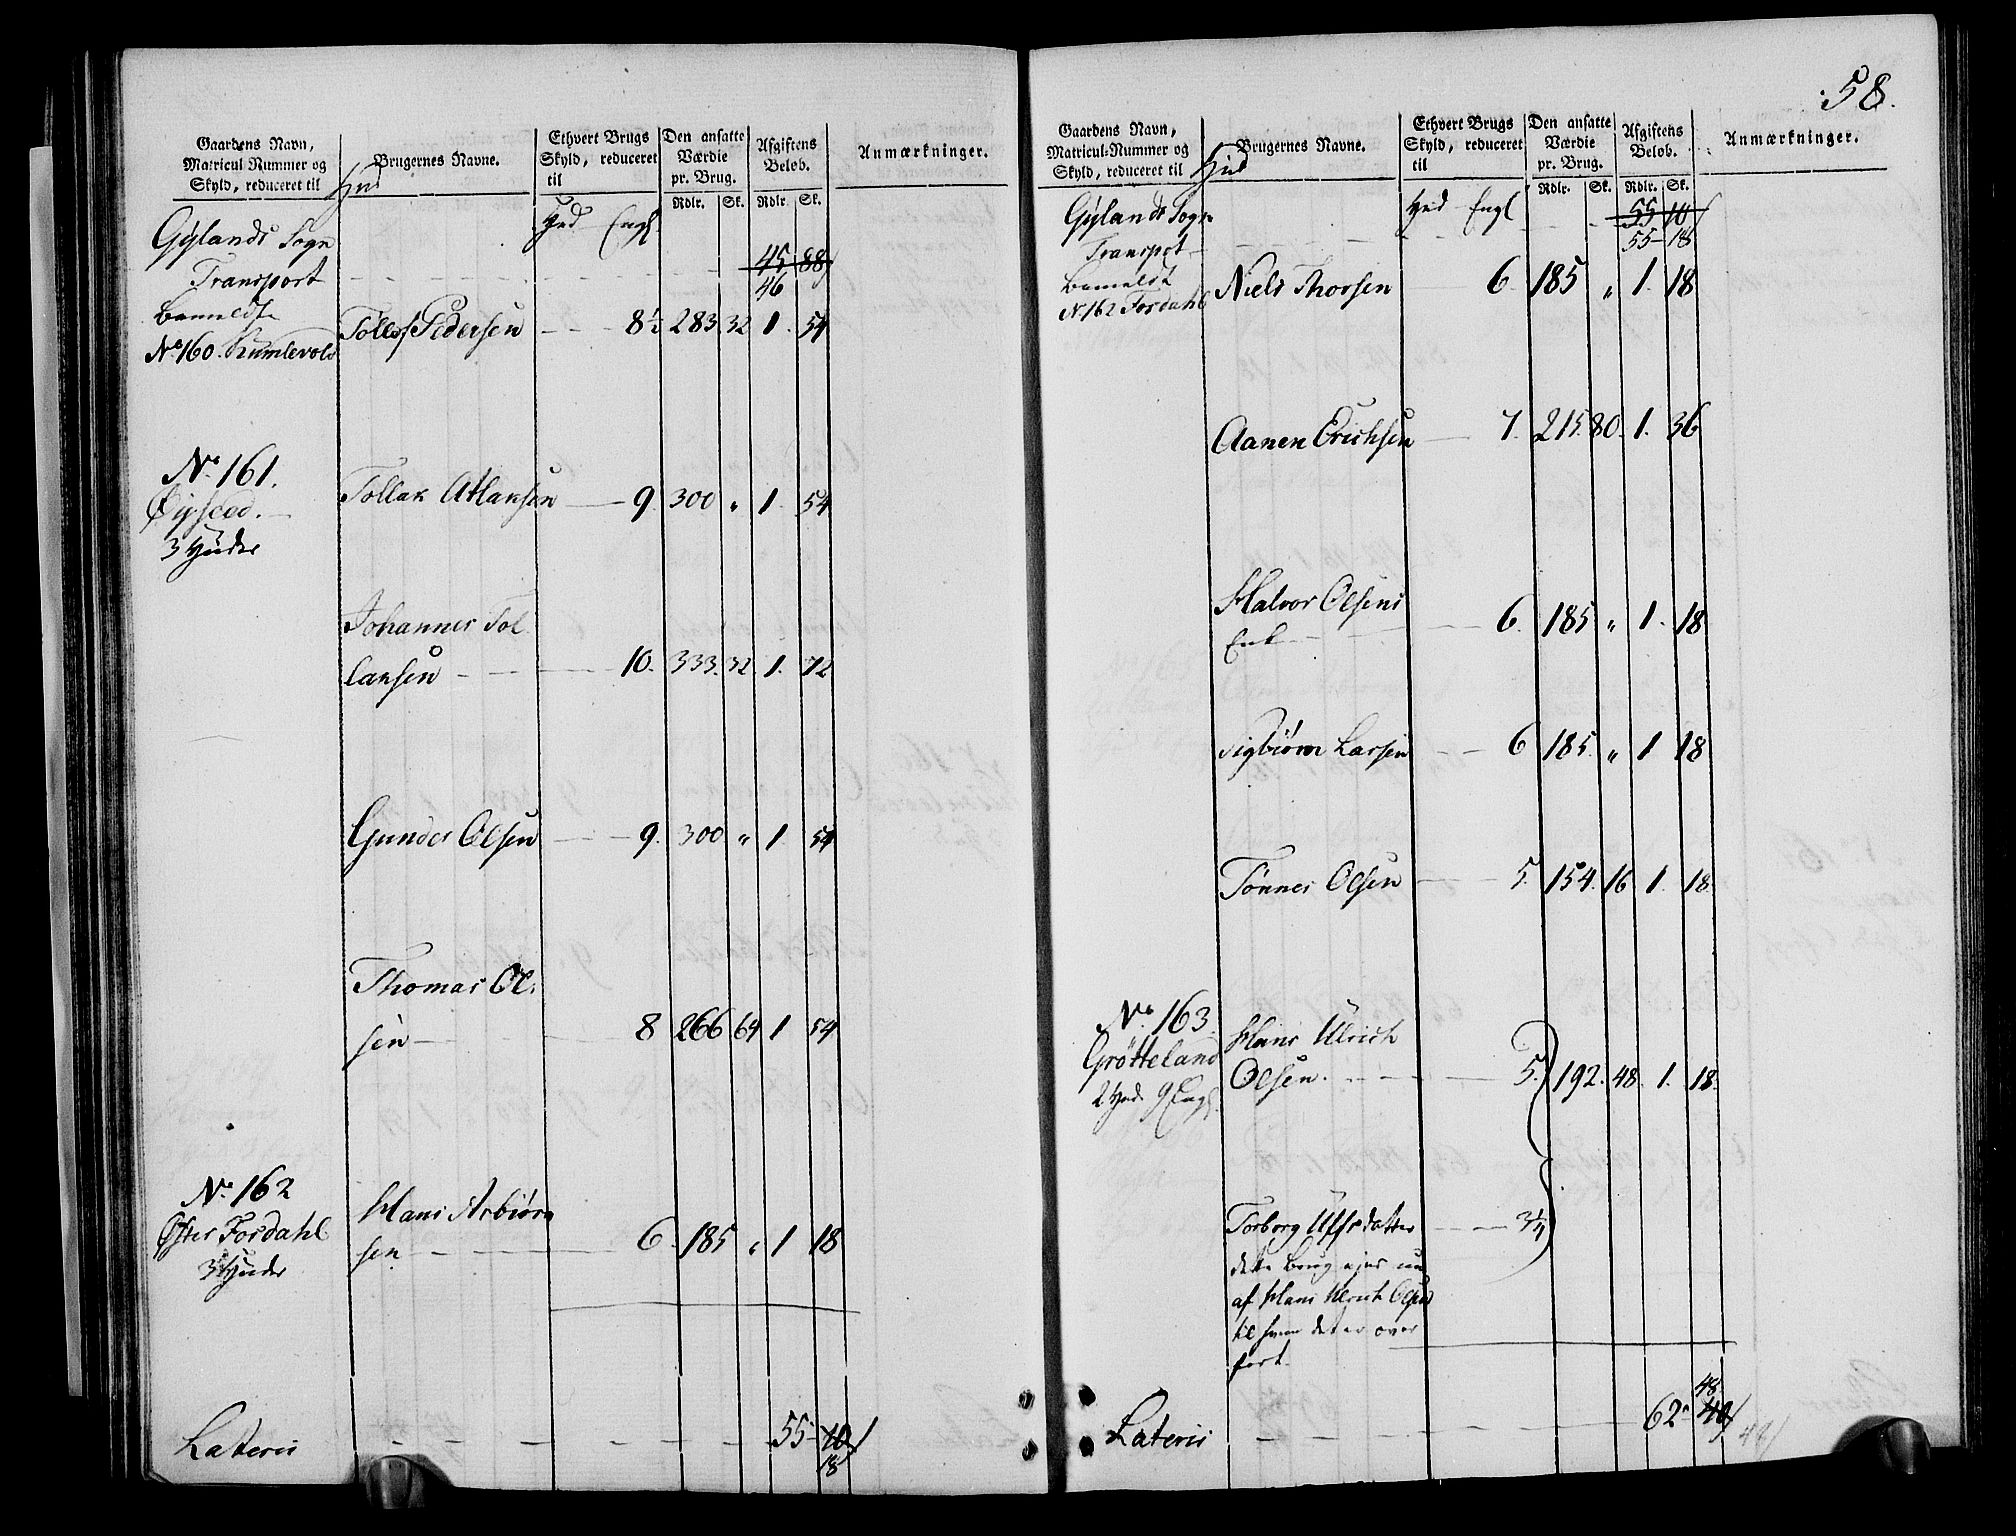 Gaardens Navn, Matricul Nummer og Skyld, reduceret til Hud | Brugernes Navne. | Ethvert Brugs Skyld, reduceret til | Den ansatte Værdie pr. Brug. | Afgiftens Beløb. | Anmærkninger.
Rdlr. Sk. Rdlr. Sk.
Gylands Sogn Hud Engl
45 88
Transport 46
Bemeldte
No 160. Tollef Pedersen 8½ 283 32 1 54
No 161. Øysæd. 3 Huder
Tollak Atlansen 9 300 " 1 54
Johannes Tollansen 10. 333. 32 1. 72
Gunder Olsen 9. 300 " 1 54
Thomas Olsen 8 266 64 1 54
No 162 Øster Fordahl 3 Huder
Hans Asbiørnsen 6 185 " 1 18
Lateris 55 10
18
58.
Gaardens Navn, Matricul-Nummer og Skyld, reduceret til Hud | Brugernes Navne. | Ethvert Brugs Skyld, reduceret til | Den ansatte Værdie pr. Brug. | Afgiftens Beløb. | Anmærkninger.
Rdlr. Sk. Rdlr. Sk.
Gylands Sogn Hud Engl 55 10
Transport 55 18
Bemeldt
No 162 Fordahl Niels Thorsen 6 185 " 1. 18
Aanen Erichsen 7. 215. 80. 1. 36
Halvor Olsens
Enke 6. 185 " 1. 18
Sigbiørn Larsen 6 185. " 1 18
Tønnes Olsen 5. 154. 16 1. 18
No. 163. Grøtteland 2 Hud 9 Engl.
Hans Ulrich
Olsen. 5. 192. 48. 1. 18.
Torborg Ulfsdatter 3½
dette brug ejes nu
af Hans Ulrich Olsen
til hvem det er over
ført.
48
Lateris 62 40
48